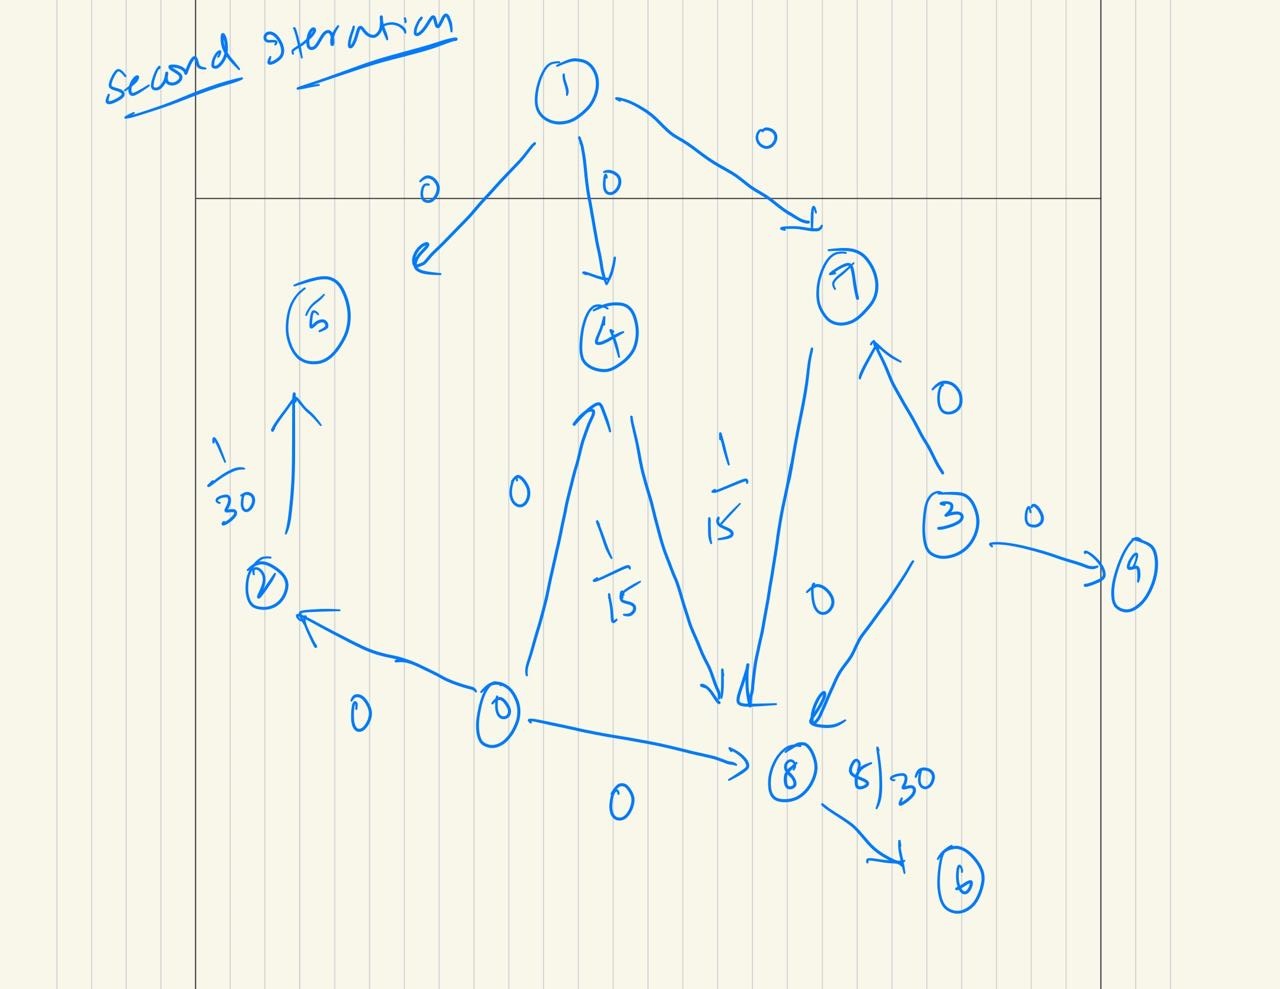 Second Iteration
1
0
0
0
5
4
7
1/30
0
1/15
1/15
0
3
0
9
2
0
0
0
0
8
8/30
6